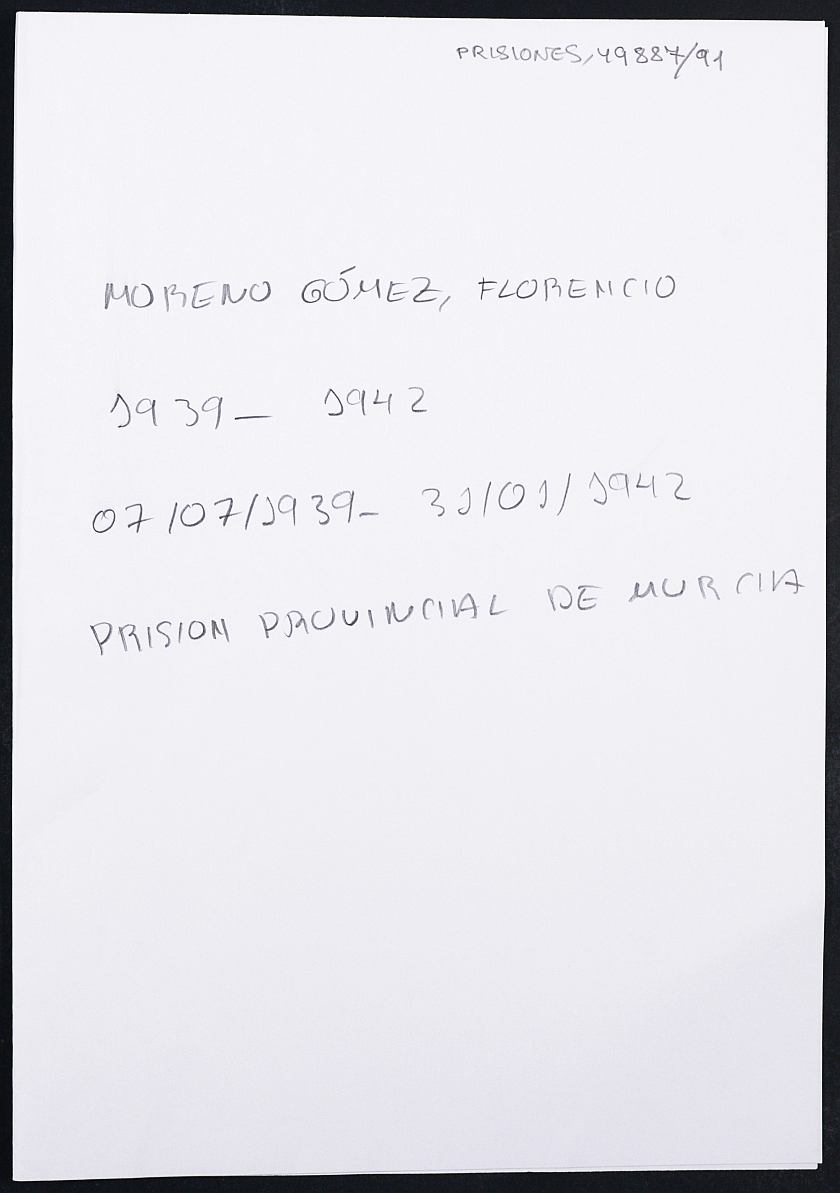 PRISIONES,49887/91
MORENO GÓMEZ, FLORENCIO
1939- 1942
07/07/1939- 31/01/1942
PRISION PROVINCIAL DE MURCIA